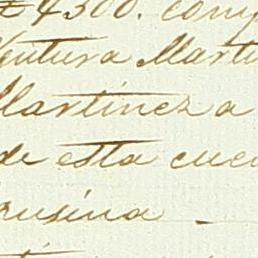 4300. comp
Ventura Marti
Martinez a
de esta cue
rusina -